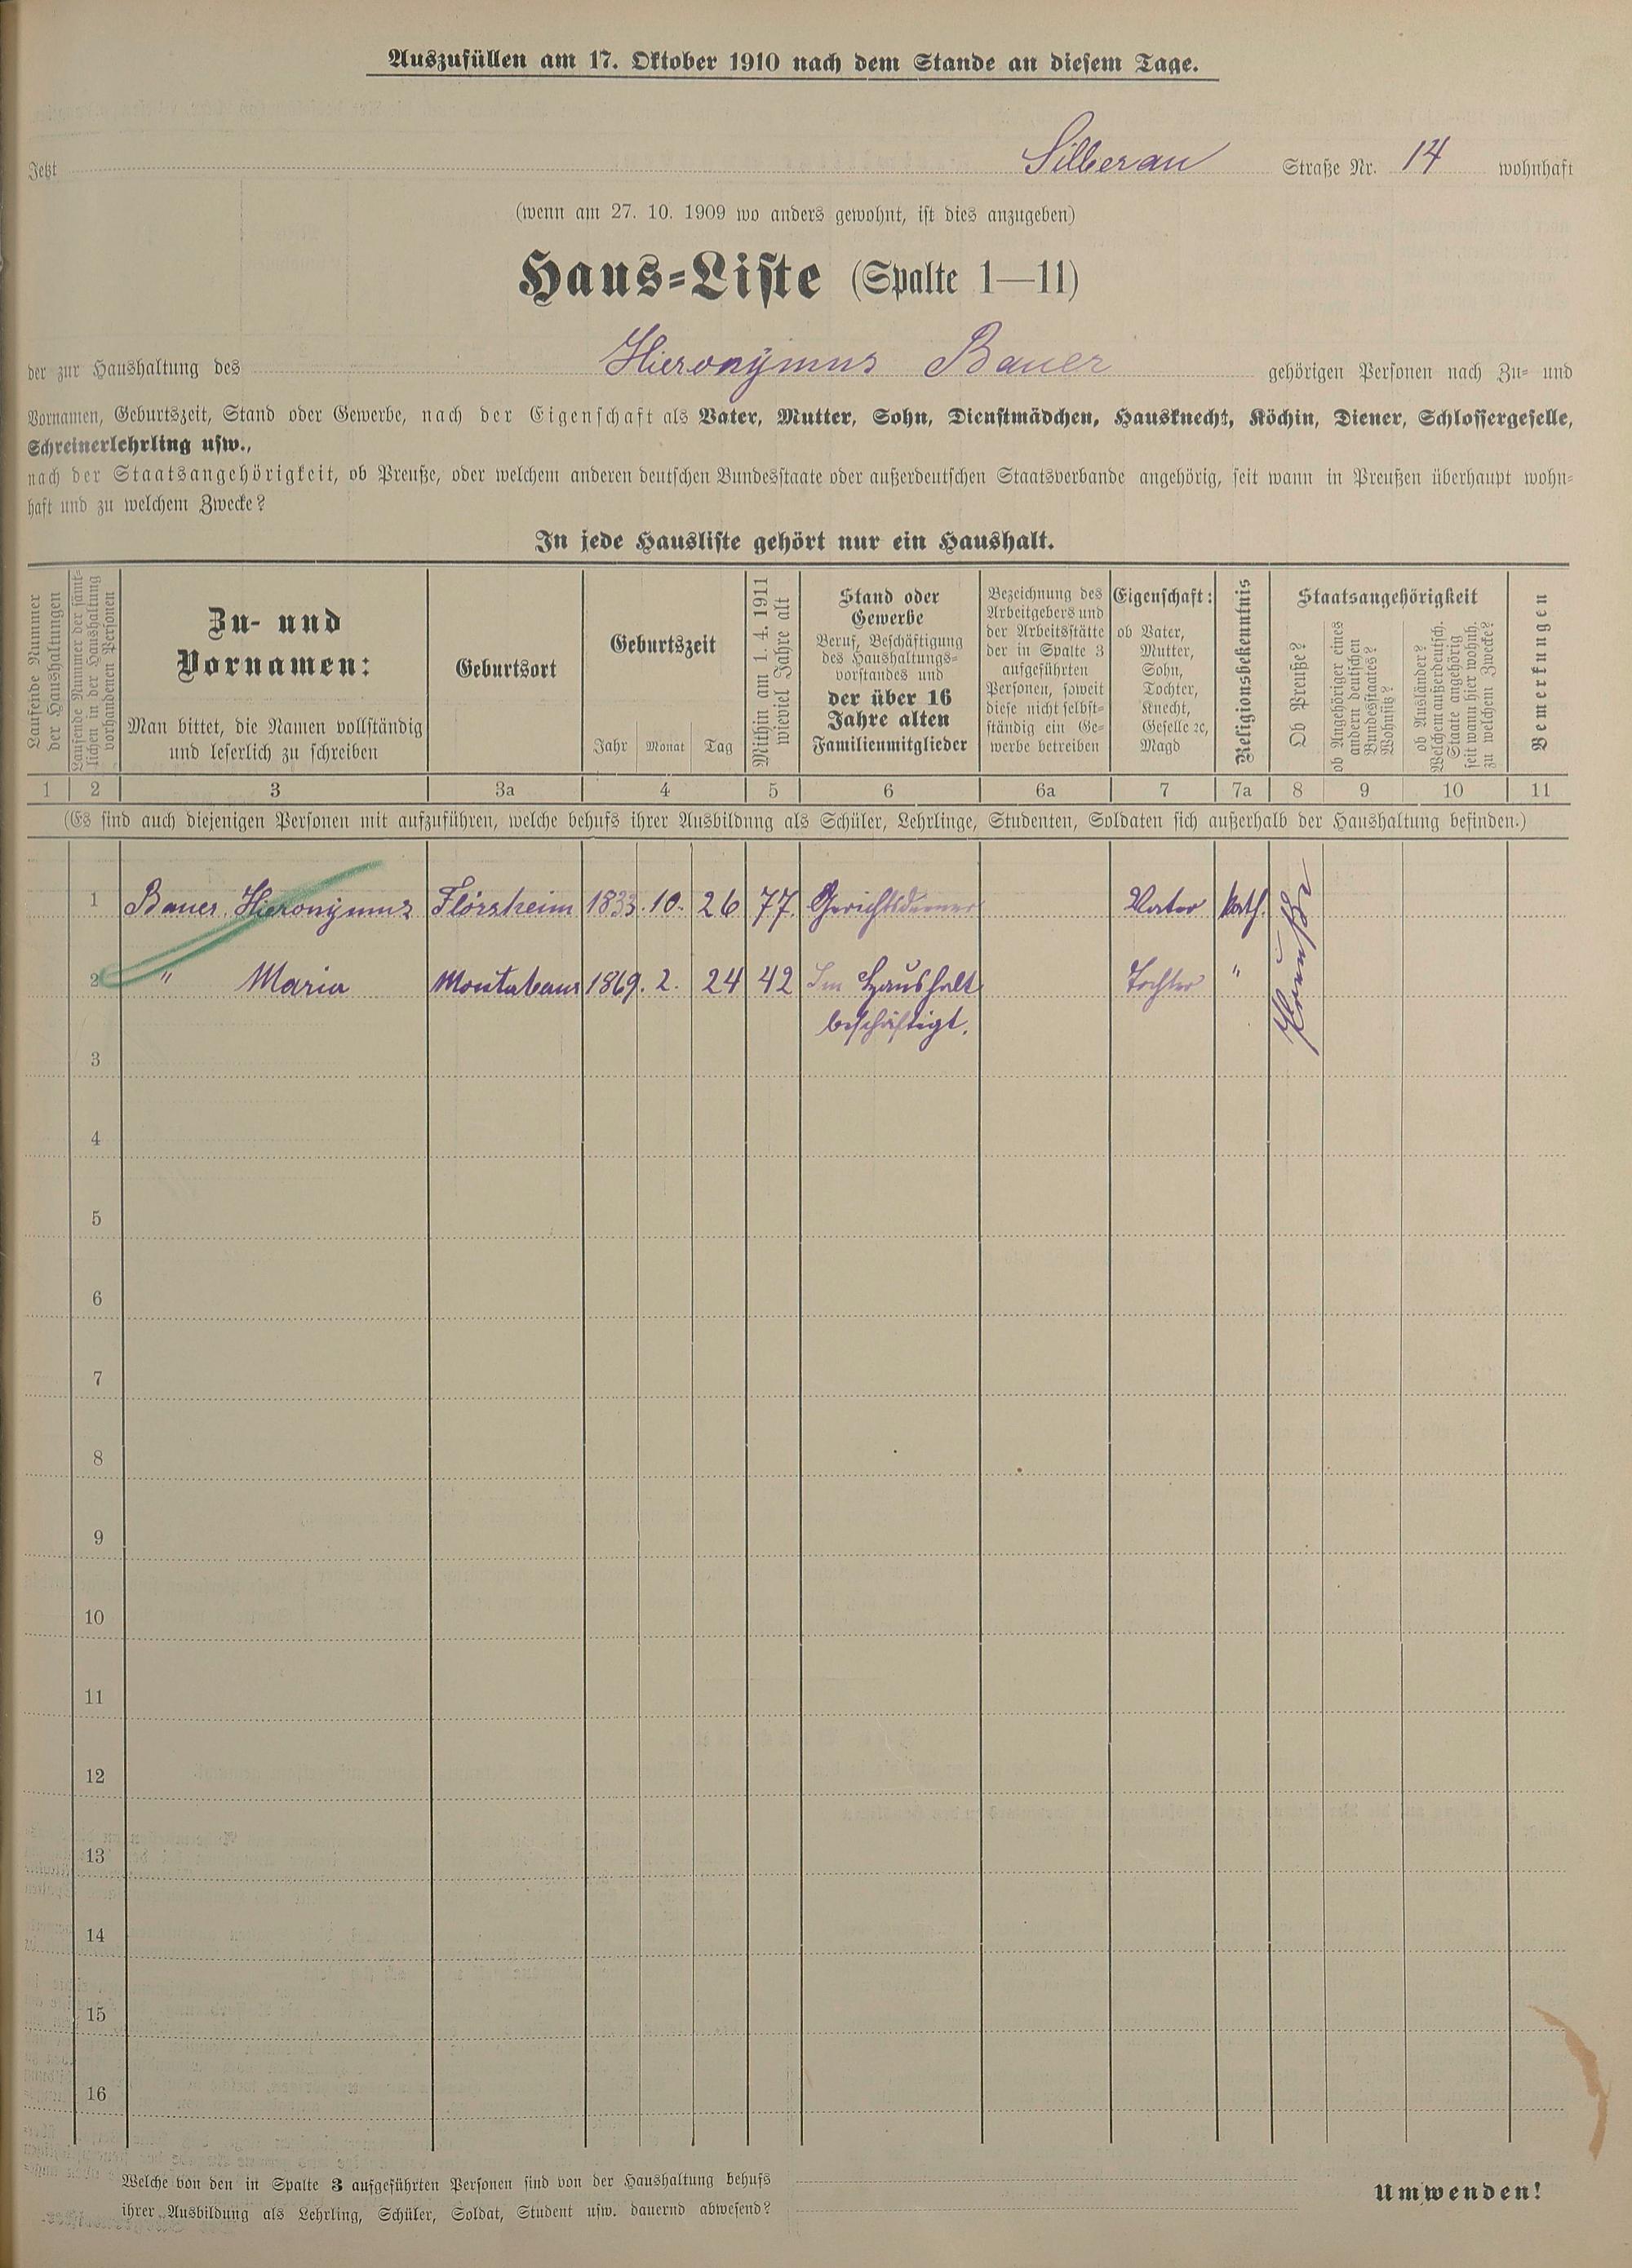 Auszufüllen am 17. Oktober 1910 nach dem Stande an diesem Tage.
Jetzt Silberau Straße Nr. 14 wohnhaft
(wenn am 27. 10. 1909 wo anders gewohnt, ist dies anzugeben)
Haus-Liste (Spalte 1—11)
der zur Haushaltung des Hieronÿmus Bauer gehörigen Personen nach Zu- und
Vornamen, Geburtszeit, Stand oder Gewerbe, nach der Eigenschaft als Vater, Mutter, Sohn, Dienstmädchen, Hausknecht, Köchin, Diener, Schlossergeselle,
Schreinerlehrling usw.,
nach der Staatsangehörigkeit, ob Preuße, oder welchem anderen deutschen Bundesstaate oder außerdeutschen Staatsverbande angehörig, seit wann in Preußen überhaupt wohn-
haft und zu welchem Zwecke?
In jede Hausliste gehört nur ein Haushalt.
Laufende Nummer
der Haushaltungen
Laufende Nummer der sämt-
lichen in der Haushaltung
vorhandenen Personen
Zu- und
Vornamen:
Man bittet, die Namen vollständig
und leserlich zu schreiben
Geburtsort
Geburtszeit
Jahr Monat Tag
Mithin am 1. 4. 1911
wieviel Jahre alt
Stand oder
Gewerbe
Beruf, Beschäftigung
des Haushaltungs-
vorstandes und
der über 16
Jahre alten
Familienmitglieder
Bezeichnung des
Arbeitgebers und
der Arbeitsstätte
der in Spalte 3
aufgeführten
Personen, soweit
diese nicht selbst-
ständig ein Ge-
werbe betreiben
Eigenschaft:
ob Vater,
Mutter,
Sohn,
Tochter,
Knecht,
Geselle ꝛc,
Magd
Religionsbekenntnis
Staatsangehörigkeit
Ob Preuße?
ob Angehöriger eines
andern deutschen
Bundesstaates?
Wohnsitz?
ob Ausländer?
Welchem außerdeutsch.
Staate angehörig
seit wann hier wohnh.
zu welchem Zwecke?
Bemerkungen
1 2 3 3a 4 5 6 6a 7 7a 8 9 10 11
(Es sind auch diejenigen Personen mit aufzuführen, welche behufs ihrer Ausbildung als Schüler, Lehrlinge, Studenten, Soldaten sich außerhalb der Haushaltung befinden.)
1 Bauer, Hieronÿmus Flörsheim 1833. 10. 26 77. Gerichtsdiener Vater kath. Preuße
2 " Maria Montabaur 1869. 2. 24 42 Im Haushalt Tochter "
beschäftigt.
3
4
5
6
7
8
9
10
11
12
13
14
15
16
Welche von den in Spalte 3 aufgeführten Personen sind von der Haushaltung behufs
ihrer Ausbildung als Lehrling, Schüler, Soldat, Student usw. dauernd abwesend?
Umwenden!